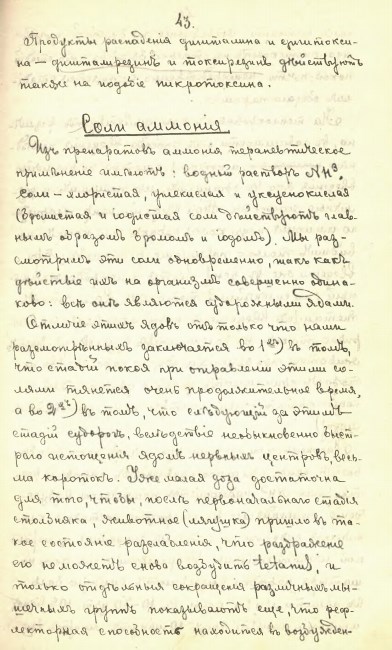 43.
Продукты распаденія дигиталина и дигитокси-
на — дигиталрезинъ и токсирезинъ дѣйствуютъ
также на подобіе пикротоксина.
Соли аммонія
Изъ препаратовъ аммонія терапевтическое
примѣненіе имѣютъ: водный растворъ NH³,
соли — хлористая, углекислая и уксуснокислая
(бромистая и іодистая соли дѣйствуютъ глав-
нымъ образомъ бромомъ и іодомъ). Мы раз-
смотримъ эти соли одновременно, такъ какъ
дѣйствіе ихъ на организмъ совершенно одина-
ково: всѣ онѣ являются судорожными ядами.
Отличіе этихъ ядовъ отъ только что нами
разсмотрѣнныхъ заключается во 1хъ) въ томъ,
что стадій покоя при отравленіи этими со-
лями тянется очень продолжительное время,
а во 2хъ) въ томъ, что слѣдующій за этимъ
стадій судорогъ, вслѣдствіе необыкновенно быст-
раго истощенія ядомъ нервныхъ центровъ, весь-
ма коротокъ. Уже малая доза достаточна
для того, чтобы, послѣ первоначальнаго стадія
столбняка, животное (лягушка) пришло въ та-
кое состояніе разслабленія, что раздраженіе
его не можетъ снова возбудить tetanus, и
только отдѣльныя сокращенія различныхъ мы-
шечныхъ группъ показываютъ еще, что реф-
лекторная способность находится въ возбужден-